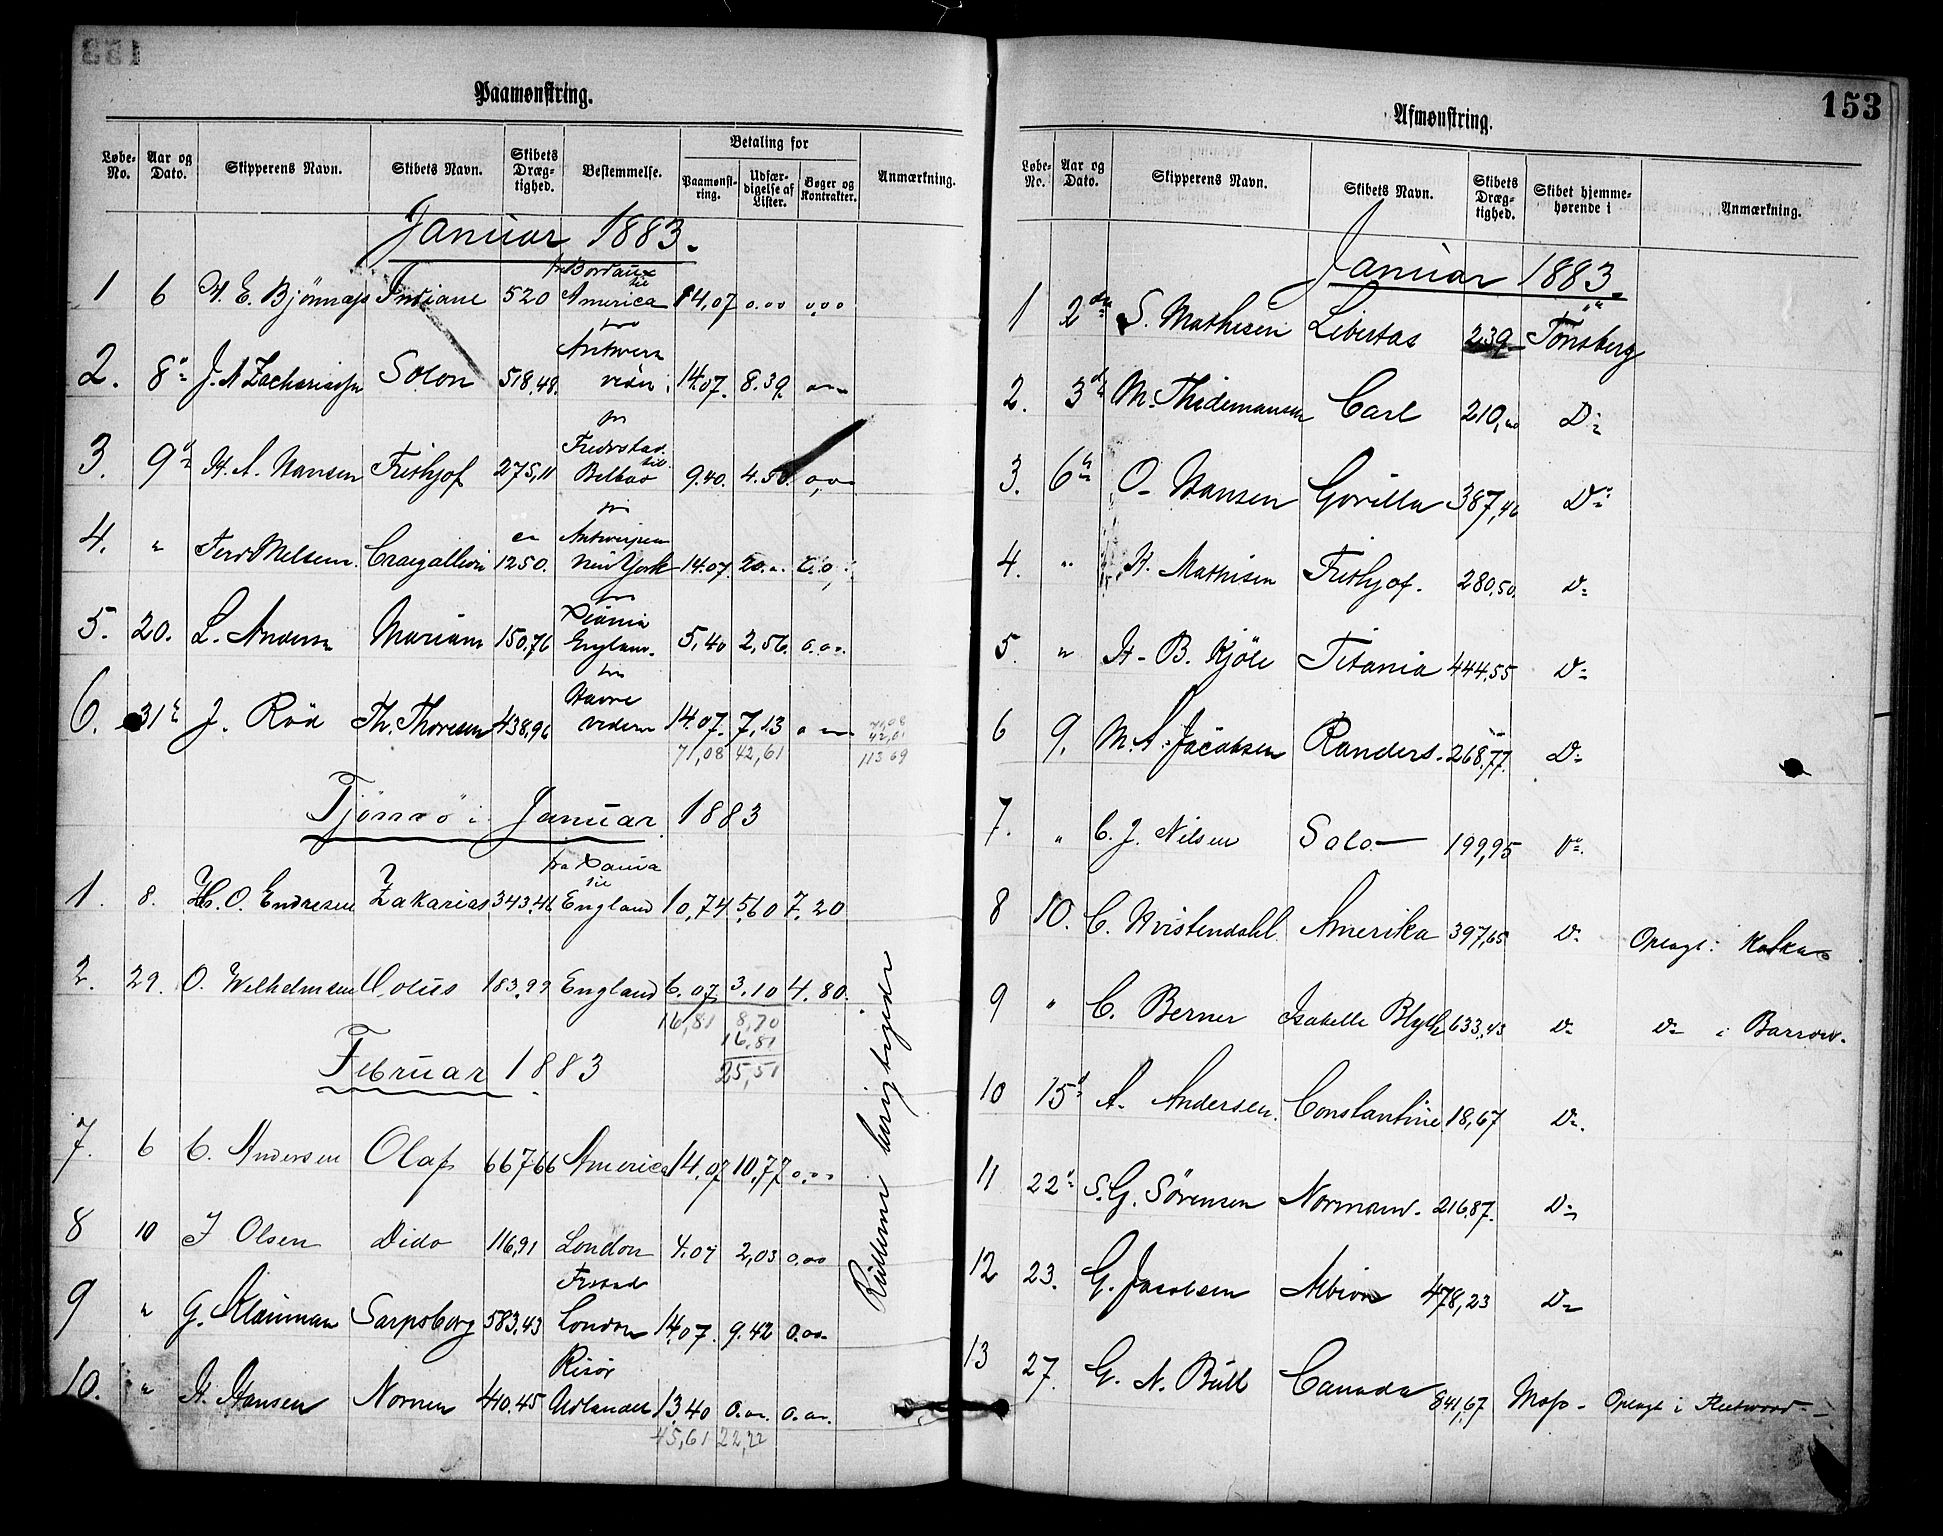 Paamønstring.
Løbe-No. Aar og Dato. Skipperens Navn. Skibets Navn. Skibets Dræg-tighed. Bestemmelse. Betaling for Paamønst-ring. Udfær-digelse af Lister. Bøger og Kontrakter. Anmærkning.
Januar 1883.
fra Bordaux til
1 6 H. E. Bjönnæs Indiane 520 America 14,07 0.00 0,00
fra Antwerp
2. 8 J. A Zachariassen Solon 518,48. viden 14.07. 8.39.
fra Fredrstad. til
3. 9 H. A. Hansen Frithjof 275,11 Bilbao 9.40. 4.50.
fra Antwerpen
4. " Ferd Nielsen. Craigallion 1250. New York 14.07. 20.
fra Xiania
5. 20. L. Andersen Mariane 150,76 England. 5,40 2,56.
fra Havre
6. 31 J. Röd Th. Thoresen 438,96 videre 14.07. 7,13
71,08 42,61
71,08
42,61
113 69
Tjömö i Januar 1883
fra Xania til
1. 8. H. O. Endresen Zakarias 343,46 England 10,74 5,60 7,20
2. 29. O. Wilhelmsen 183,99 England 6.07 3.10 4.80.
16,81 8,70
16.81
25,51
Februar 1883
7. 6 C. Andersen Olaf 667,66 America 14.07 10,77 0,00
8 10 J Olsen Dido 116,91 London 4.07 2,03 0.00
Frstad
9 " G. Sarpsborg 583,43 London 14.07. 9.42 0.00
Risör
10. " H. Hansen Nornen 410.45 Udlandet 13,40 0.00. 0.00.
45,61 22,22
153
Afmønstring.
Løbe-No. Aar og Dato. Skipperens Navn. Skibets Navn. Skibets Dræg-tighed. Skibet hjemme-hørende i Anmærkning.
Januar 1883.
1 2 S. Mathisen Libertas 239 Tönsberg
2. 3 M. Thidemansen Carl 210, D
3. 6 O. Hansen Gorilla 387,46 D
4. " H. Mathisen Frithjof. 280,50. D
5. " H. B. Kjöle Titania 444,55 D
6 9. M. A. Jacobsen Randers. 268.77. D
7. " C. J. Nilsen Solo 199,95 D
8 10. C. Hvistendahl Amerika 397,65 D Oplagt i
9 " C. Berner Isabella Blyth 633,43 D D i Barrow.
10 15 A. Andersen. Constantine 18,67 D
11 22 S. G. Sörensen Normand. 216.87. D
12 23. G. Jacobsen Albion 478,23 D
13 27. G. N. Bull Canada 841,67 Moss. Oplagt i Fleetwood.